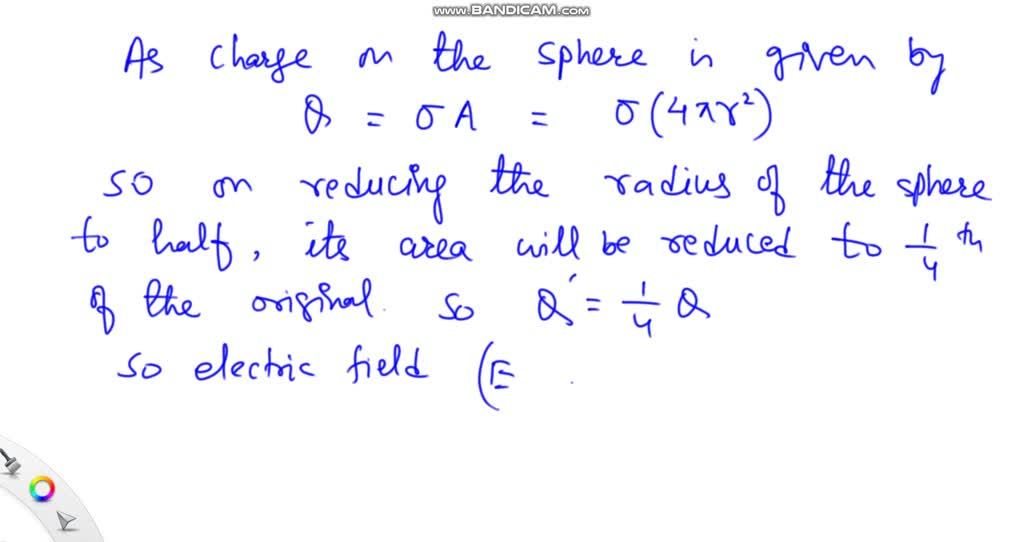 www.BANDICAM.com
As charge on the sphere is given by
Q = σA = σ(4πr²)
so on reducing the radius of the sphere
to half, its area will be reduced to 1/4 th
of the original. So Q' = 1/4 Q
so electric field (E